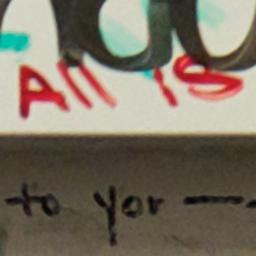 All is
to yor —